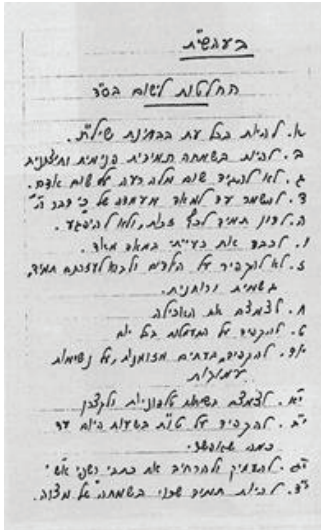 בעהשי״ת
החלטות לישום בס״ד
א. להיות בכל עת בבחינת שויל״ת.
ב. להיות בשמחה תמידית פנימית וחיצונית
ג. לא להגיד שום מלה רעה על שום אדם.
ד. להשמר עד למאד מעמדה של כי דבר ה׳
ה. לדון תמיד לכף זכות, ולא להיפגע.
ו. לכבד את רעייתי במאד מאד.
ז. לא להקפיד על הילדים ולבוא לעזרתם תמיד,
בגשמיות וברוחניות.
ח. לצמצם את האכילה
ט. להקפיד על התעמלות בכל יום
יו״ד. להקפיד, בעתים מזומנות, על נשימות
עמוקות
י״א. לצמצם בשיחות טלפוניות ולקצרן
י״ב. להקפיד על טו״ת בשעות היום עד
כמה שאפשר.
י״ג. להעמיק ולהרחיב את כתבי רשפי אש
י״ד. להיות תמיד שרוי בשמחה של מצוה.